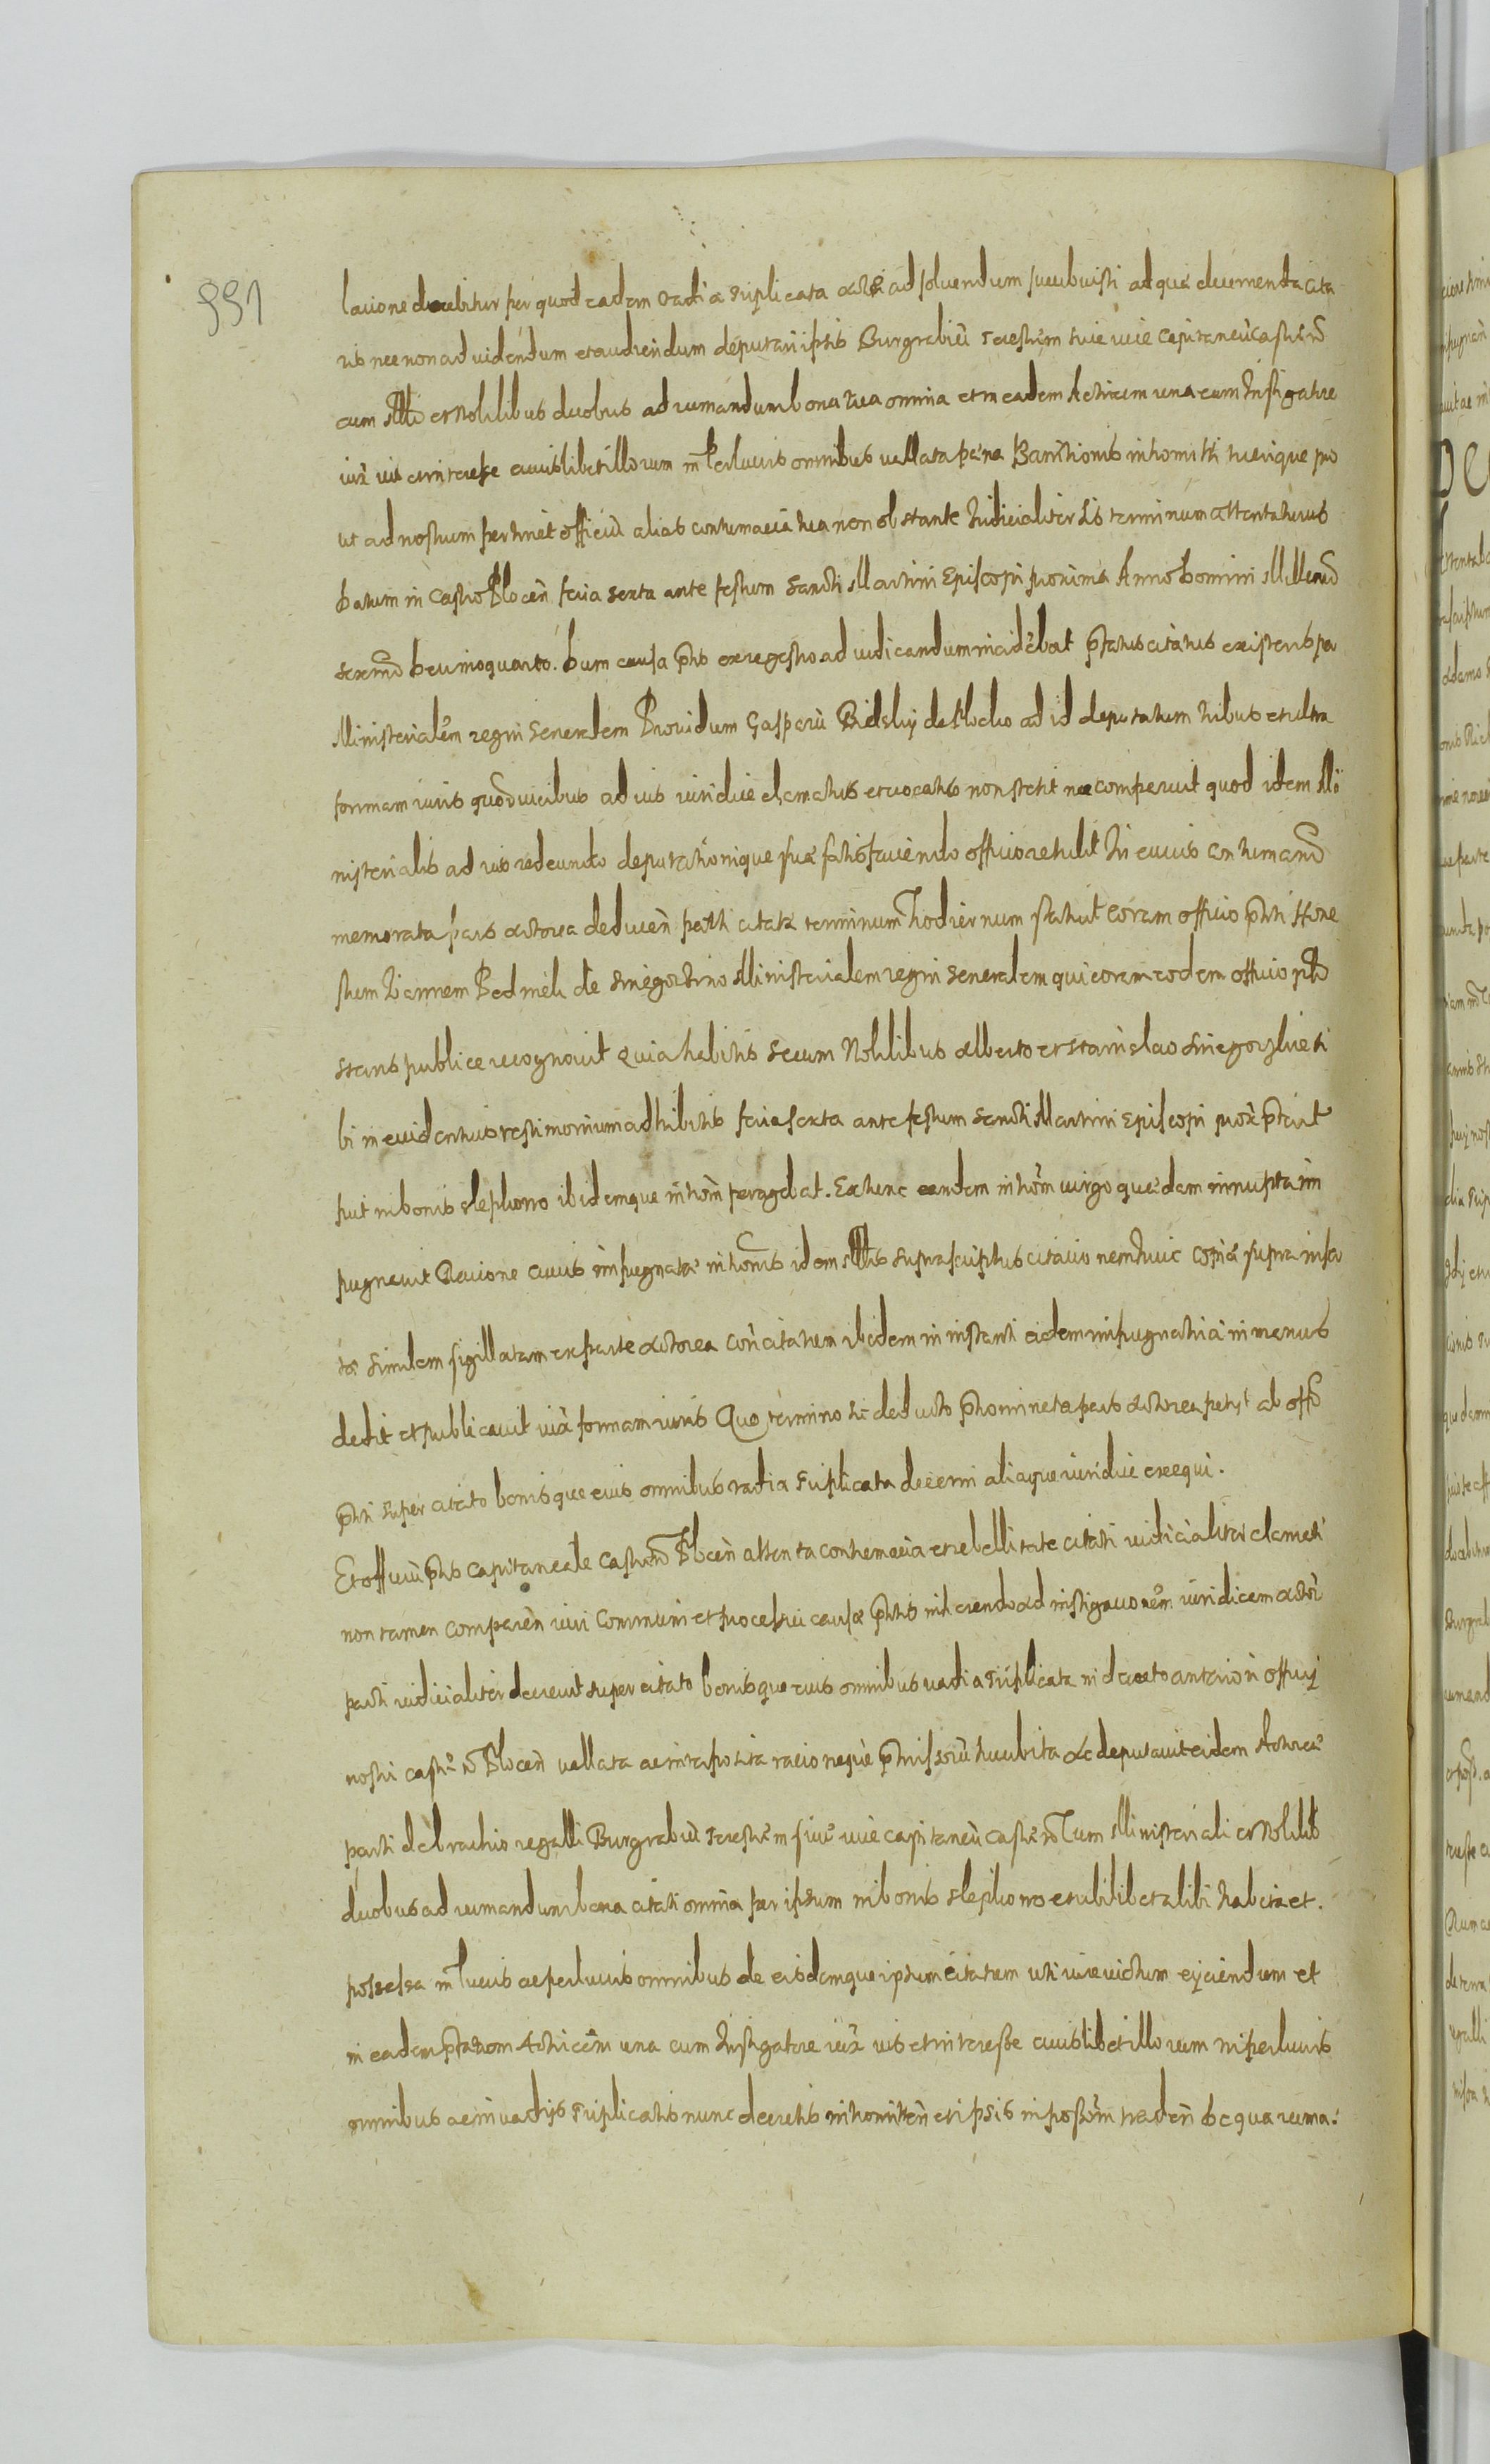 991
lacione docebitur per quod eadem vadia triplicata actrici ad soluendum succubuisti ad quae decernenda cita
ris nec non ad videndum et audiendum deputari ipsis Burgrabiū terrestrem siue vice capitaneū castrēn
cum Mĩli et Nobilibus duobus ad rumandum bona tua omnia et in eadem Actricem una cum Instigatore
iuxã ius et interesse cuiuslibet illorum in perlucris omnibus vallata paena Bannitionis intromitti tuerique pro
ut ad nostrum pertinet officiū alias contumacia tua non obstante Iudicialiter sis terminum attentaturus
Datum in Castro Plocēn feria sexta ante festum Sancti Martini Episcopi proxima Anno Domini Millēmo
sexcmō Decimoquarto. Dum causa pñs ex regestro ad iudicandum incidebat pñtatus citatus existens per
Ministerialem regni Generalem Prouidum Gasparū Bielsky de Plocko ad id deputatum tribus et ultra
formam iuris quatuor vicibus ad ius iuridice clamatus et vocatus non stetit nec comperuit quod idem Mi
nisterialis ad ius redeundo deputationique suae satisfaciendo officiose retulit In cuius contumaciam
memorata pars actorea deducēn parti citatae terminum hodiernum statuit coram officio pñti Hone
stum Ioannem Pedmeli de Sniegoczino Ministerialem regni Generalem qui coram eodem officio pñti
stans publice recognouit Quia habitis secum Nobilibus Alberto et Stanislao Sniegoczkie si
bi in euidentius testimonium adhibitis feria sexta ante festum Sancti Martini Episcopi prox̄ pterit
fuit in bonis Slepkowo ibidemque introm̄ peragebat. Ex hinc eandem introm̄ virgo quaedam innupta im
pugnauit Racione cuius impugnatae introm̄is idem Mĩlis suprascriptus citacionem huic copiae supra inser
tae similem sigillatam ex parte actorea con citatum ibidem in instanti eidem impugnatrici in manus
dedit et publicauit iuxã formam iuris Quo termino sic deducto pñominata pars actorea petyt ab offō
pñti super citato bonisque eius omnibus vadia triplicata decerni aliaque iuridice exequi.
Et officiū pñs capitaneale castren̄ Plocēn attenta contumacia et rebellitate citati iudicialiter clamati
non tamen comparēn iuri communi et processui causae pñtis inhaerendo ad instigacionem iuridicam actoreae
parti iudicialiter decreuit super citato bonisque eius omnibus vadia triplicata in decreto anteriori officij
nostri castreñ Plocēn vallata ac interposita racioneque pmissorū succubita ac deputauit eidem Actoreae
parti de brachio regalli Burgrabiū terestrem siue vice capitaneū castreñ cum Ministeriali et Nobilib
duobus ad rumandum bona citati omnia per ipsum in bonis Slepkowo et ubilibet alibi habita et.
possessa in lucris ac perlucris omnibus de eisdemque ipsum citatum uti iure victum eijciendum et
in eadem pñtatam Actricem una cum Instigatore iuxã ius et interesse cuiuslibet illorum in perlucris
omnibus ac in vadijs triplicatis nunc decretis intromitteñ et ipsis in possõm tradeñ De qua ruma.